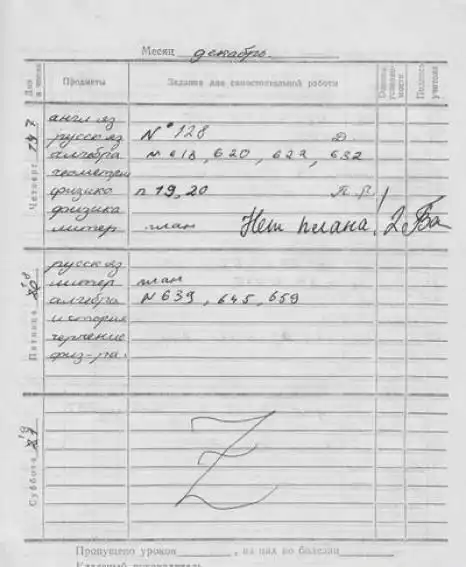 Месяц декабрь
Дни и числа Предметы Задания для самостоятельной работы Оценка успеваемости Подпись учителя
Четверг 17
англ яз
русск яз № 128 Д.
алгебра № 618, 620, 622, 632
геометрия
физика п 19, 20
физика
литер план Нет плана! 2
Пятница 18
русск яз
литер план
алгебра № 639, 645, 659
история
черчение
физ-ра
Суббота 19
Z
Пропущено уроков , из них по болезни
Классный руководитель